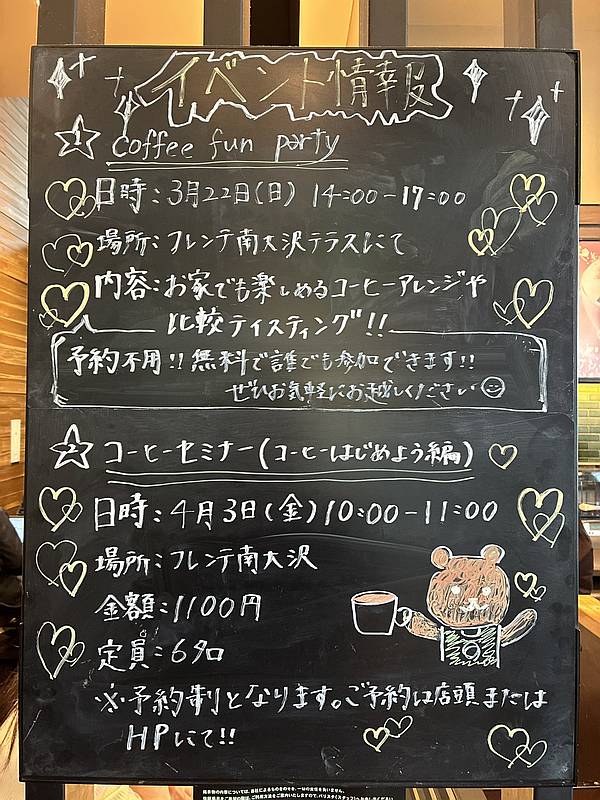 イベント情報
1 coffee fun party
日時：3月22日(日) 14:00-17:00
場所：フレンテ南大沢テラスにて
内容：お家でも楽しめるコーヒーアレンジや
比較テイスティング!!
予約不用!! 無料で誰でも参加できます!!
ぜひお気軽にお越しください
2 コーヒーセミナー(コーヒーはじめよう編)
日時：4月3日(金) 10:00-11:00
場所：フレンテ南大沢
金額：1100円
定員：6名
※予約制となります。ご予約は店頭または
HPにて!!